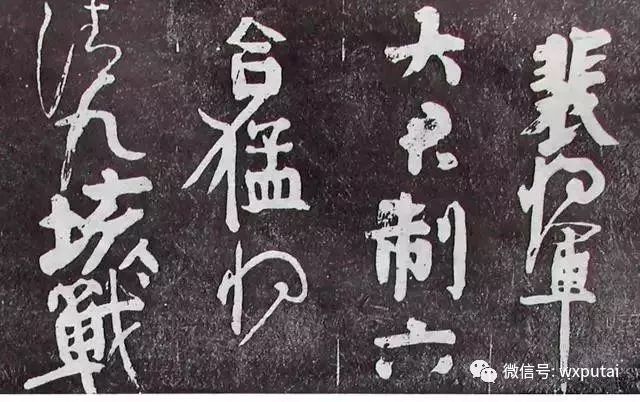 裴將軍
大君制六
合猛將
清九垓戰
微信号: wxputai